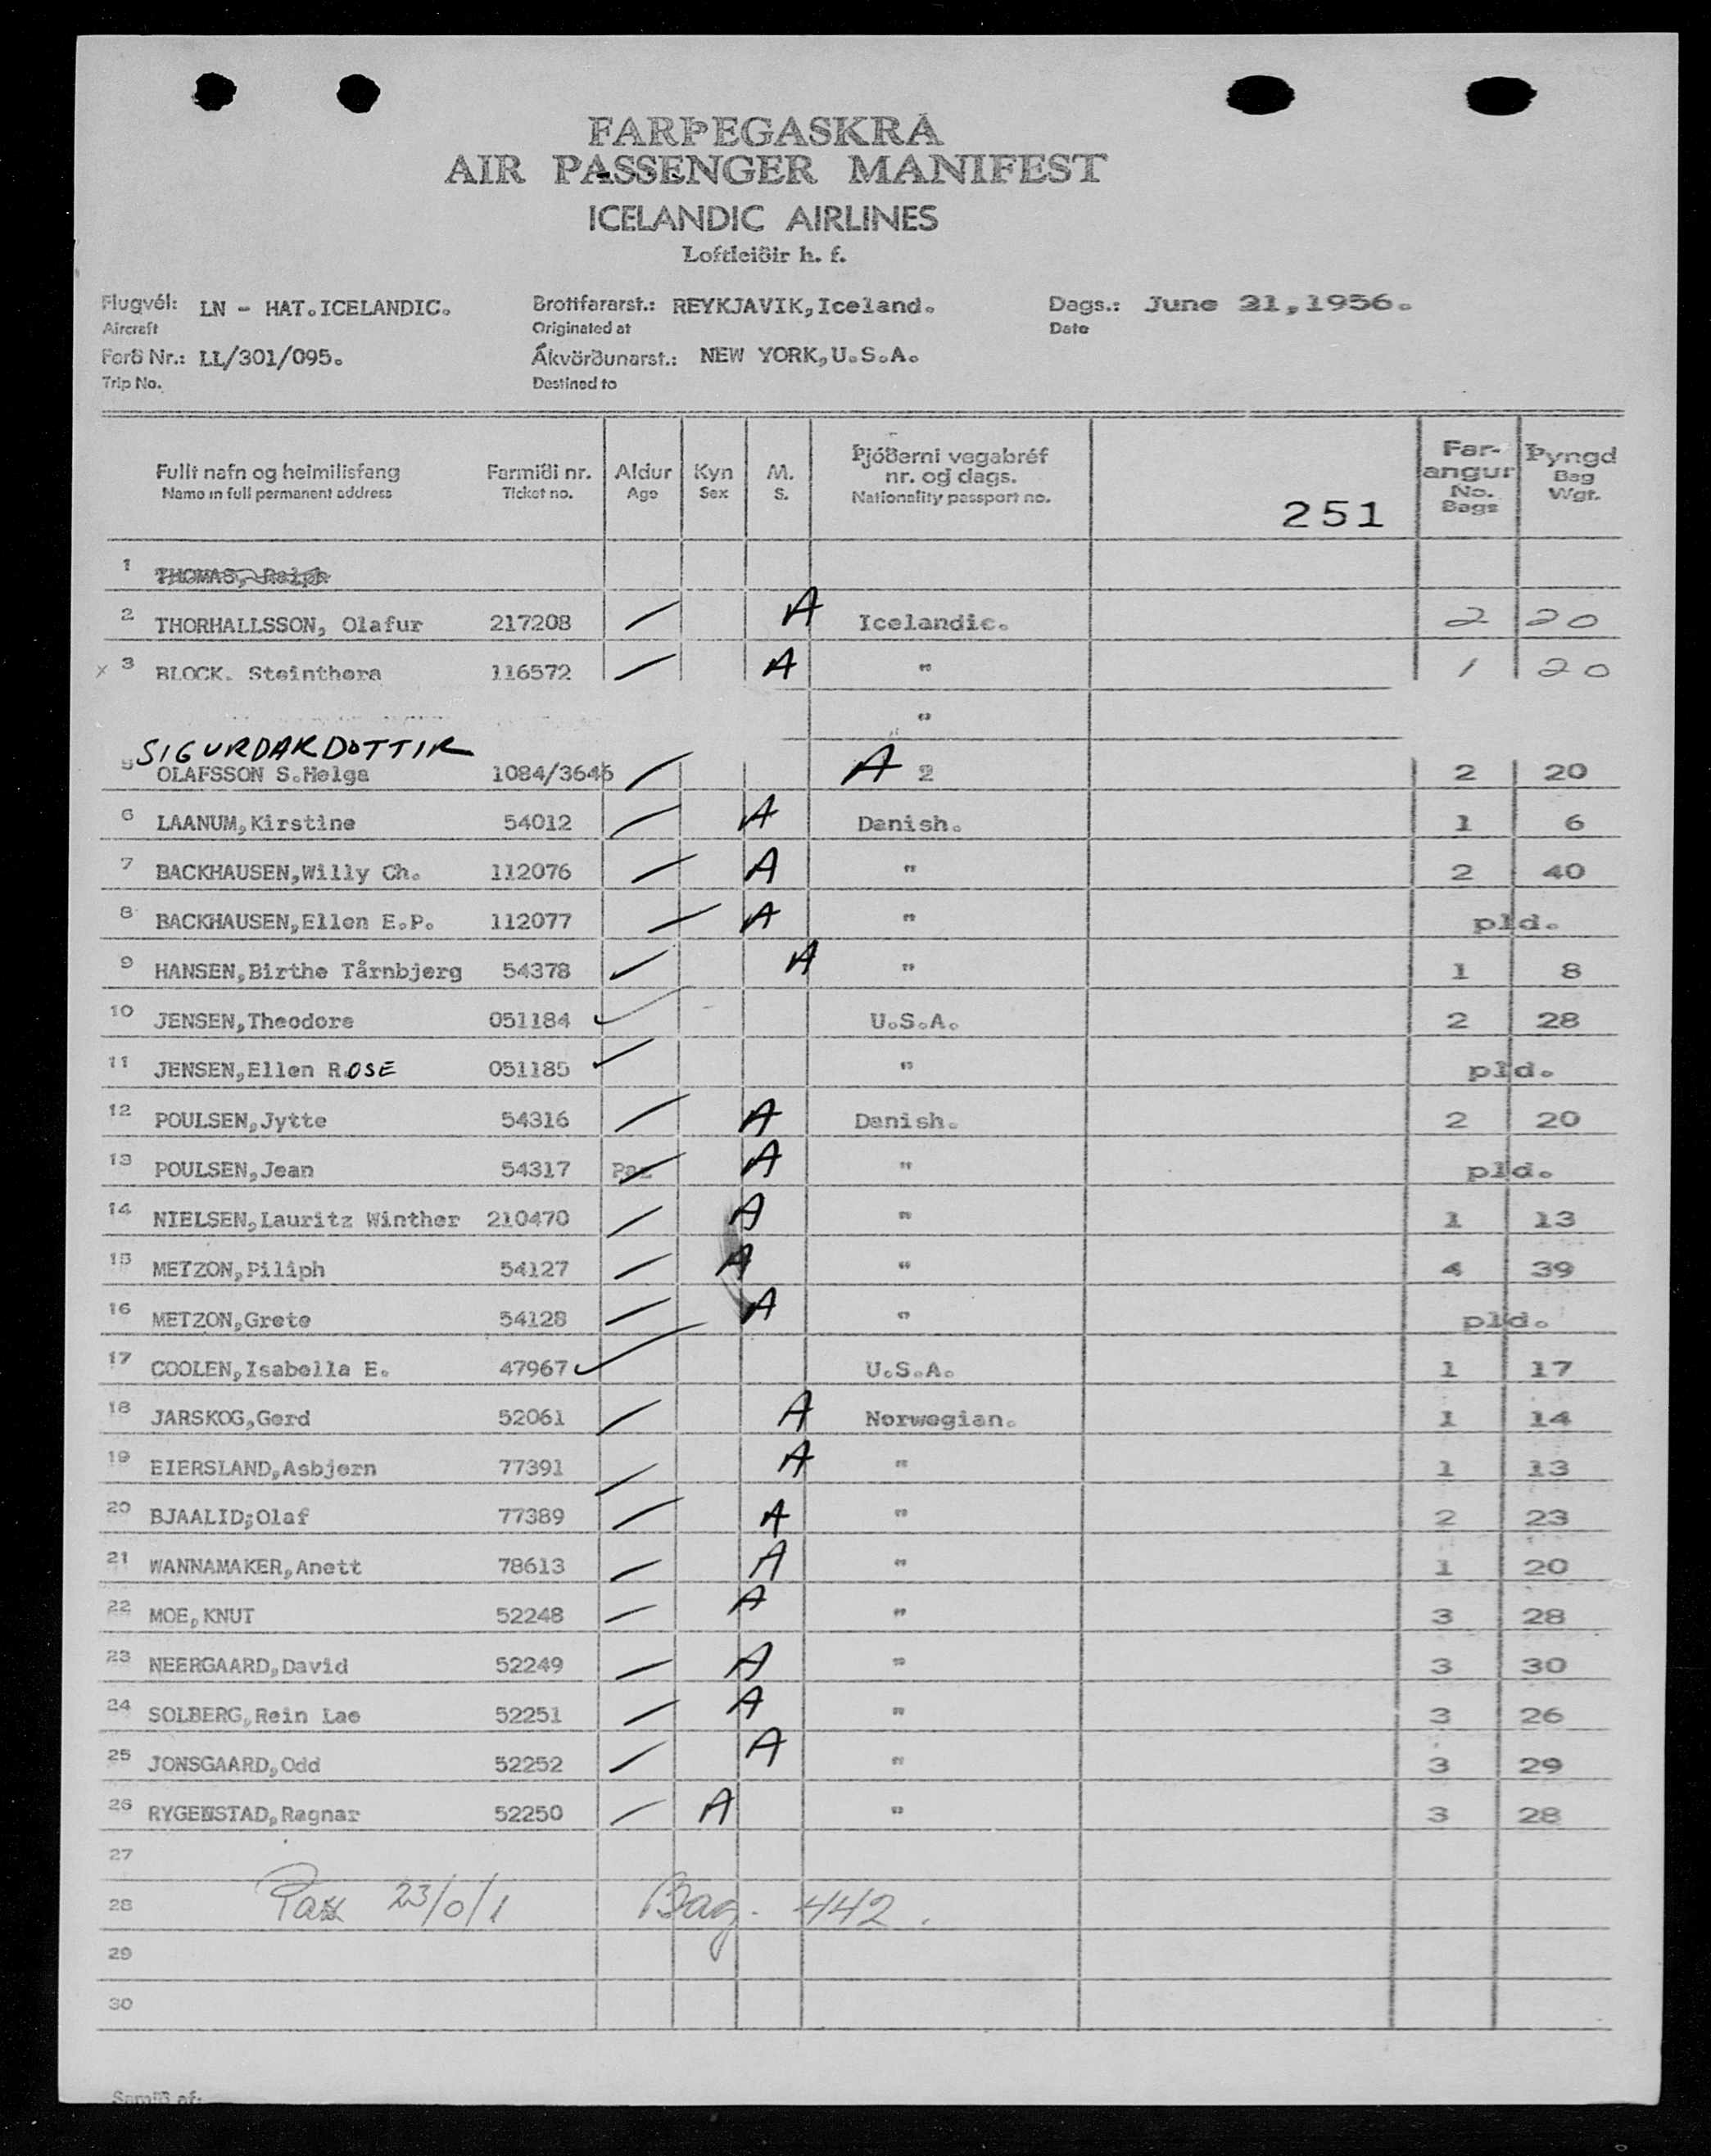 FARÞEGASKRÁ
AIR PASSENGER MANIFEST
ICELANDIC AIRLINES
Loftleiðir h. f.
Flugvél: LN - HAT.ICELANDIC. Brottfararst.: REYKJAVIK,Iceland. Dags.: June 21,1956.
Aircraft Originated at Date
Ferð Nr.: LL/301/095. Ákvörðunarst.: NEW YORK,U.S.A.
Trip No. Destined to
Fullt nafn og heimilisfang Farmiði nr. Aldur Kyn M. Þjóðerni vegabréf Far- Þyngd
Name in full permanent address Ticket no. Age Sex S. nr. og dags. angur Bag
Nationality passport no. 251 No. Wgt.
Bags
1 THOMAS, Ralph
2 THORHALLSSON, Olafur 217208 A Icelandic. 2 20
x 3 BLOCK. Steinthora 116572 A " 1 20
"
SIGURDARDOTTIR
5 OLAFSSON S.Helga 1084/3646 A 2 2 20
6 LAANUM,Kirstine 54012 A Danish. 1 6
7 BACKHAUSEN,Willy Ch. 112076 A " 2 40
8 BACKHAUSEN,Ellen E.P. 112077 A " pld.
9 HANSEN,Birthe Tårnbjerg 54378 A " 1 8
10 JENSEN,Theodore 051184 U.S.A. 2 28
11 JENSEN,Ellen ROSE 051185 " pld.
12 POULSEN,Jytte 54316 A Danish. 2 20
13 POULSEN,Jean 54317 A " pld.
14 NIELSEN,Lauritz Winther 210470 A " 1 13
15 METZON,Piliph 54127 A " 4 39
16 METZON,Grete 54128 A " pld.
17 COOLEN,Isabella E. 47967 U.S.A. 1 17
18 JARSKOG,Gerd 52061 A Norwegian. 1 14
19 EIERSLAND,Asbjern 77391 A " 1 13
20 BJAALID;Olaf 77389 A " 2 23
21 WANNAMAKER,Anett 78613 A " 1 20
22 MOE,KNUT 52248 A " 3 28
23 NEERGAARD,David 52249 A " 3 30
24 SOLBERG,Rein Lae 52251 A " 3 26
25 JONSGAARD,Odd 52252 A " 3 29
26 RYGENSTAD,Ragnar 52250 A " 3 28
27
28 Pax 23/0/1 Bag. 442.
29
30
Samið af: